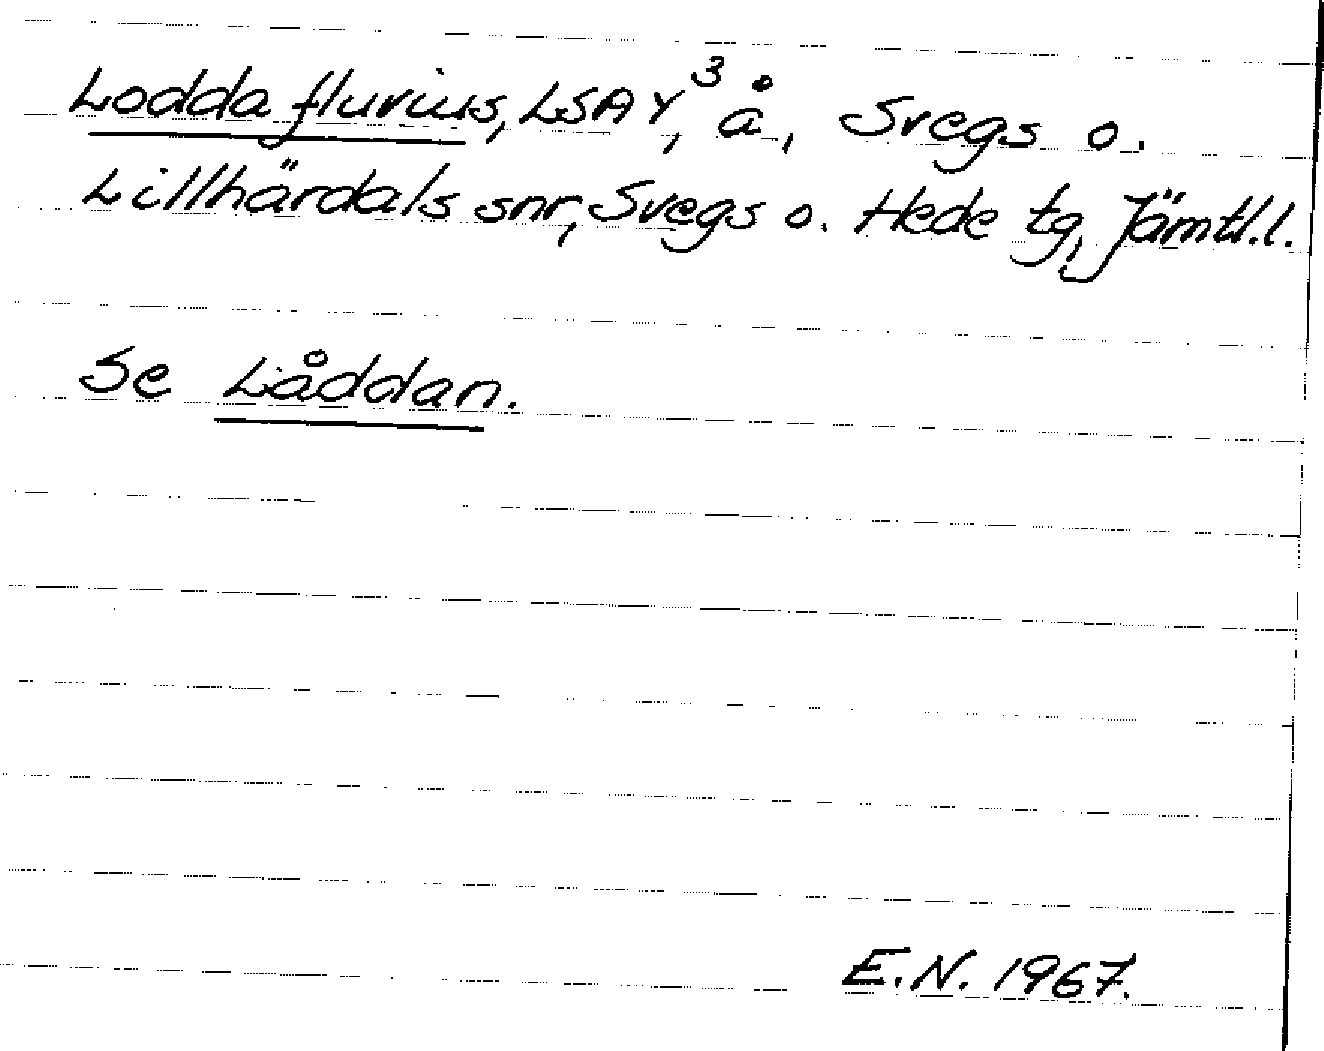 Lodda fluvius, LSA Y³, å, Svegs o.
Lillhärdals snr, Svegs o. Hede tg, Jämtl.l.
Se Låddan.
E.N. 1967.